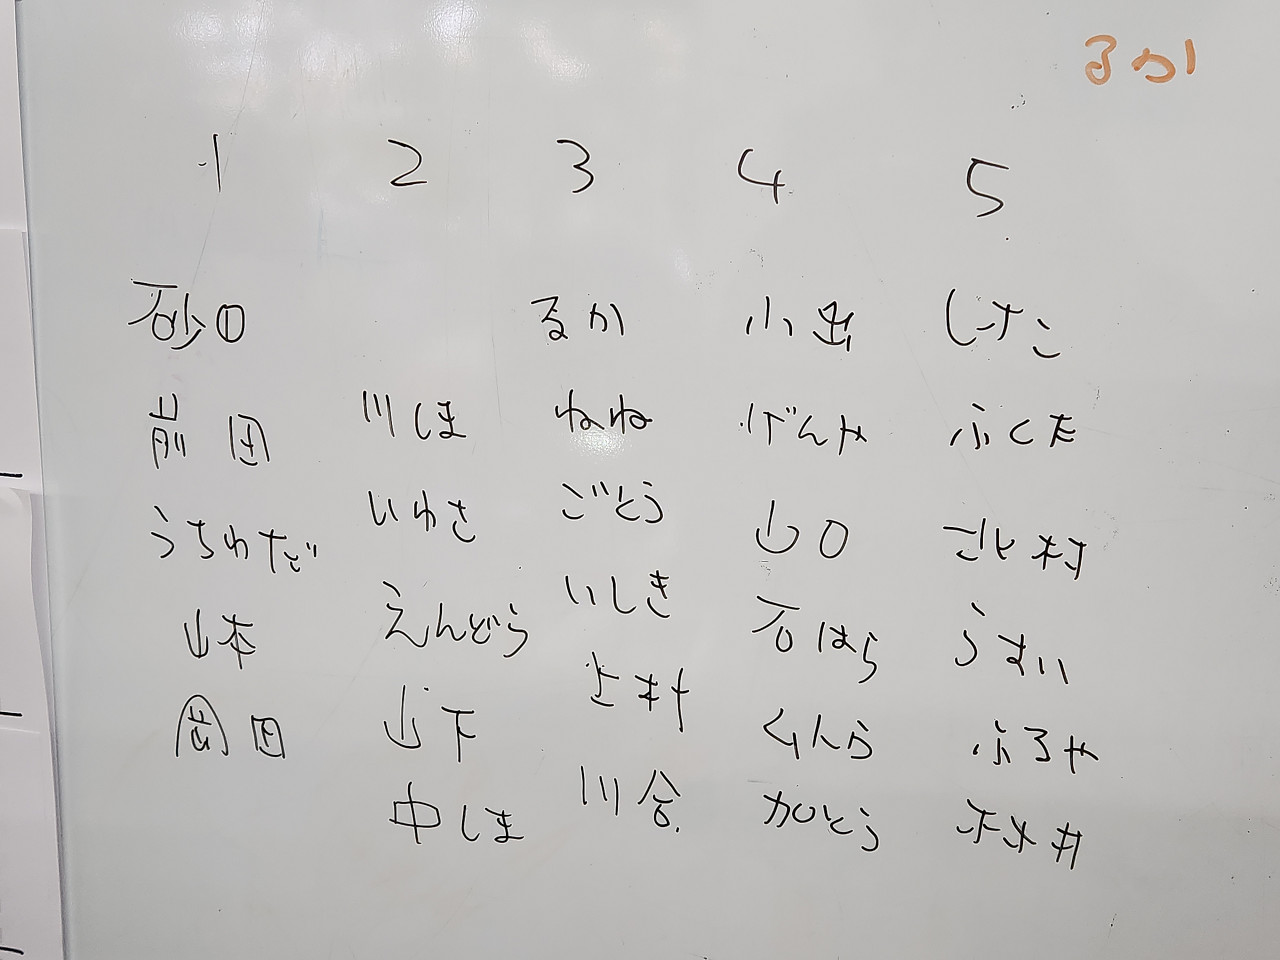 るか
1 2 3 4 5
砂田 るか 小出 しサこ
前田 川しま ねね げんや ふくだ
うちわだ いわさ ごとう 山口 北村
山本 えんどう いしき 石はら うすい
山下 さ村 くんら ふるや
中しま 川合 加とう